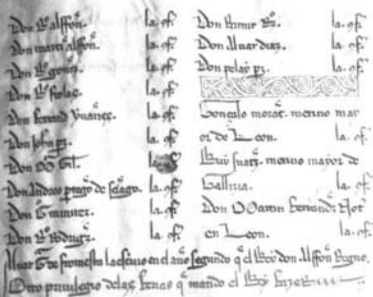 Don Rº alffon. la. cf.
Don marti alffon. la. cf.
Don Rº gomez. la. cf.
Don Rº frolaz. la. cf.
Don Ferrand yuanez. la. cf.
Don Johan pz. la. cf.
Don Gil. la.
Don Andreo de la. cf.
Don la. cf.
Don Rº Rodrigz. la. cf.
Don Ramir Rz. la. cf.
Don Aluar diaz. la. cf.
Don pelay pz. la. cf.
Gonçalo morant. merino mar
or de Leon. la. cf.
Roy suarz. merino mayor de
Gallizia. la. cf.
Don Garcia Not
en Leon. la. cf.
Aluar Gz de fromesta la escriuo en el año segundo q el Rey don Alffon Regno.
Otro priuilegio delas q mando el Rey fazer